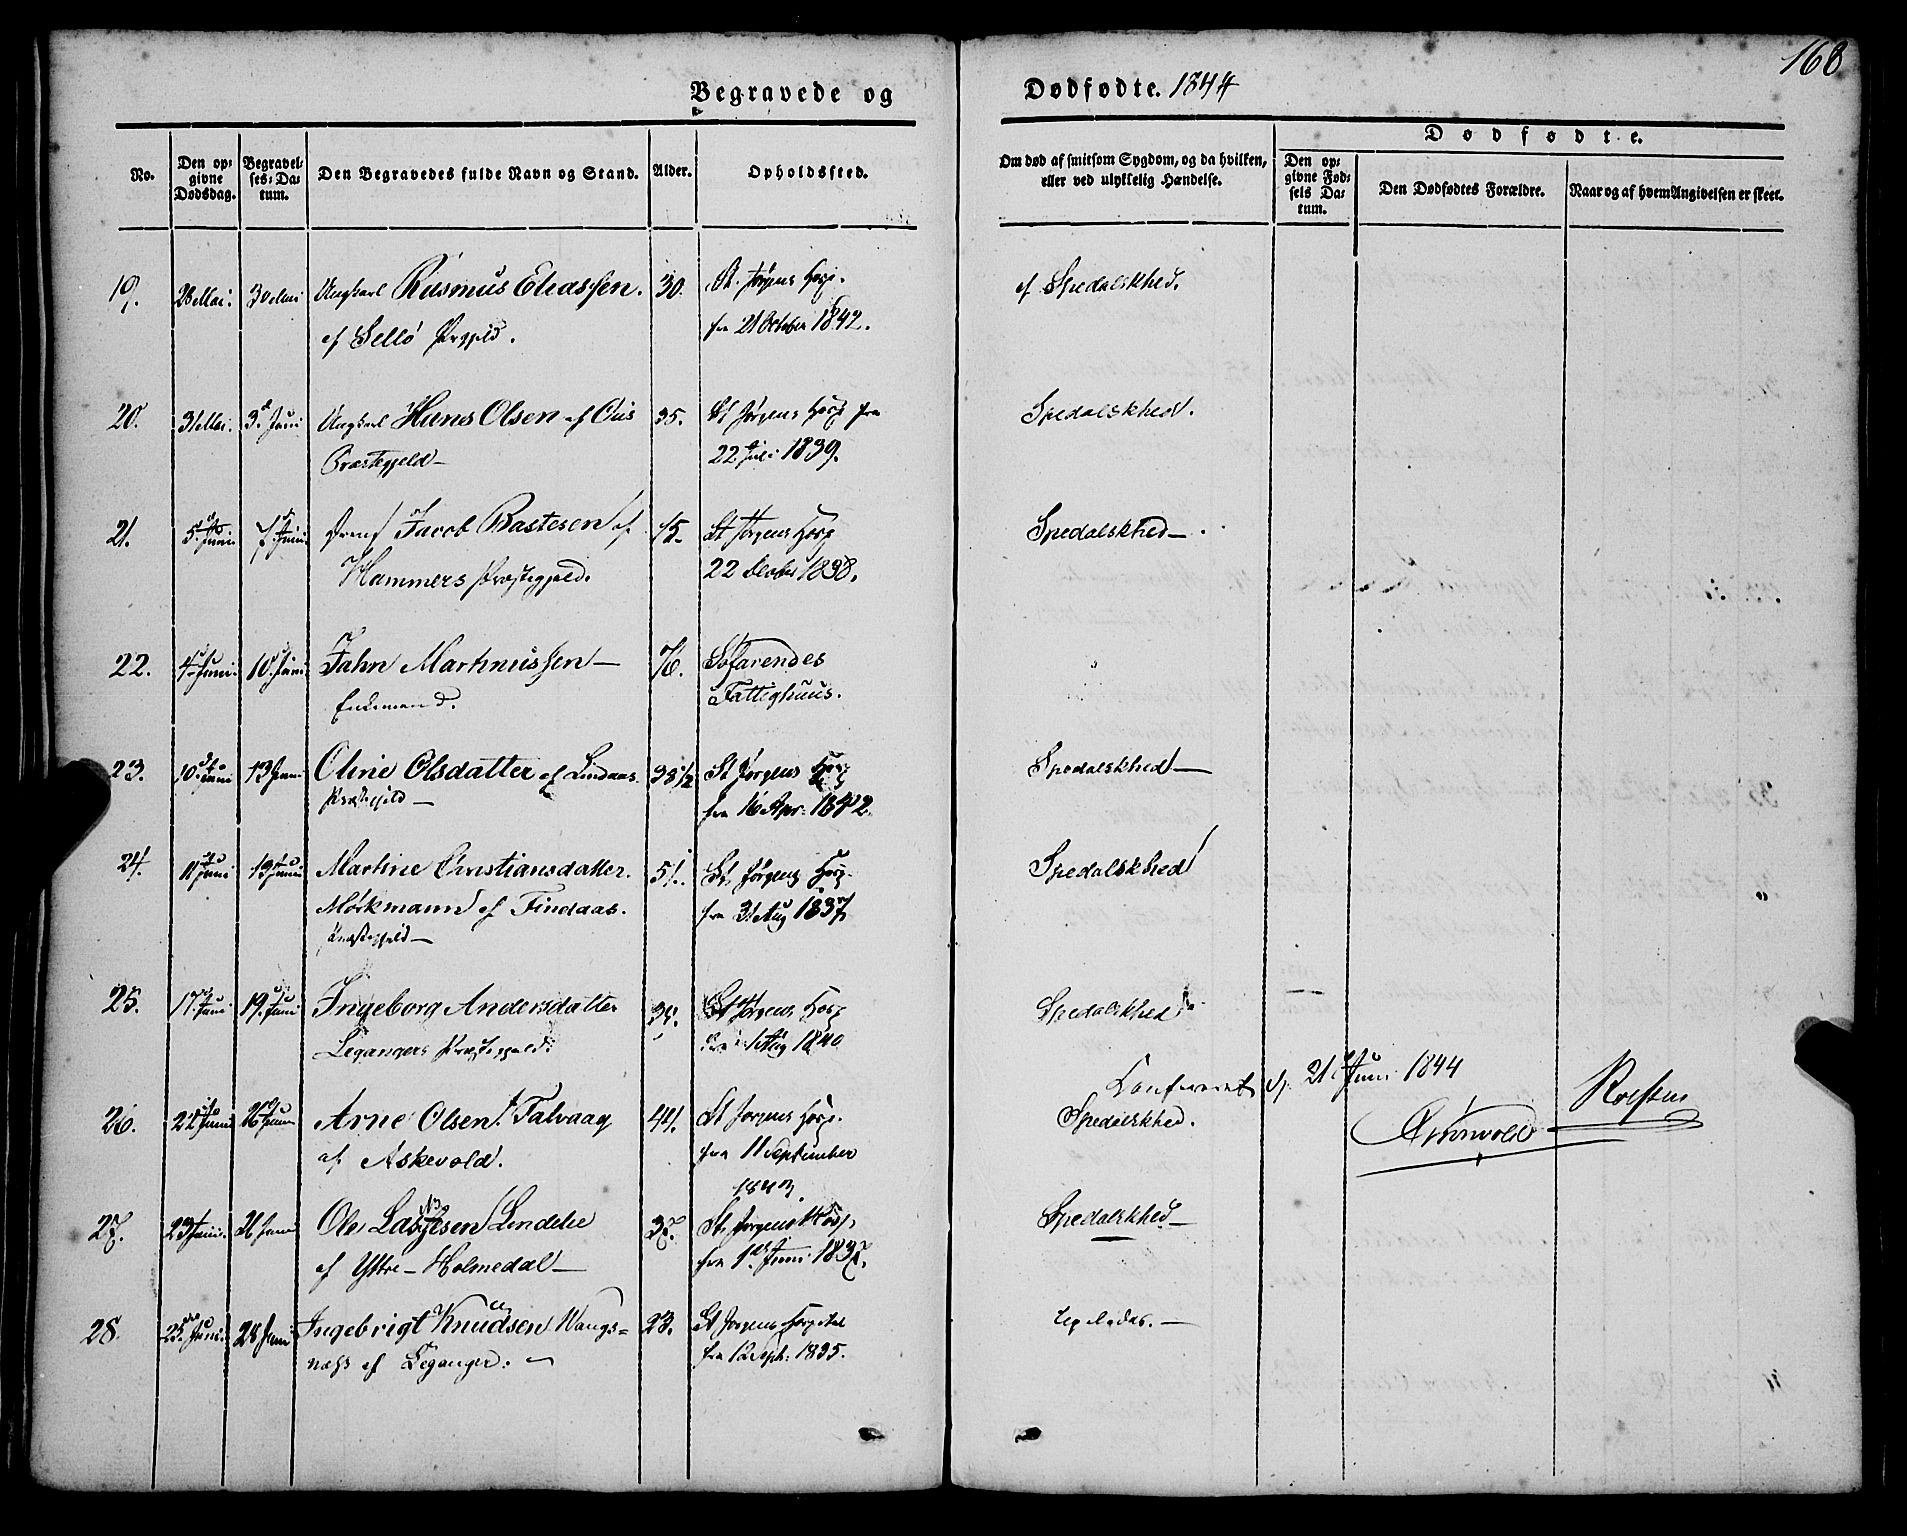 168
Begravede og Dødfødte. 1844
No.
Den opgivne Dødsdag.
Begravelses-Datum.
Den Begravedes fulde Navn og Stand.
Alder.
Opholdssted.
Om død af smitsom Sygdom, og da hvilken, eller ved ulykkelig Hændelse.
Dødfødte.
Den opgivne Fødsels Datum.
Den Dødfødtes Forældre.
Naar og af hvem Angivelsen er skeet.
19. 28 Mai. 30 Mai Ungkarl Rasmus Eliassen. 30. St. Jørgens Hosp. af Spedalskhed.
af Sellø Prgjeld. fra 21 October 1842.
20. 31 Mai. 3d Juni Ungkarl Hans Olsen af Ous 35. St Jørgens Hosp fra Spedalskhed.
Præstegjeld— 22 Juli 1839.
21. 5 Juni 7 Juni Jacob Rastesen af 15. St Jørgens Hosp Spedalskhed—
Hammers Præstegjeld. 22 October 1838.
22. 4 Juni 10 Juni Jahn Martinussen— 76. Søfarendes
Enkemand. Fattighuus.
23. 10 Juni 13 Juni Oline Olsdatter af Lindaas 38½ St Jørgens Hosp Spedalskhed—
Præstegjeld— fra 16 Apr. 1842.
24. 11 Juni 13 Juni Martine Christiansdatter 51. St. Jørgens Hosp. Spedalskhed
Mørkmann af Findaas. fra 31 Aug 1837
Præstegjeld—
25. 17 Juni 19 Juni Ingeborg Andersdatter St Jørgens Hosp Spedalskhed
Legangers Præstegjeld. fra 1 Aug 1840
Confereret d. 21 Juni 1844
26. 22 Juni 26 Juni Arne Olsen Talvaag 44. St Jørgens Hosp. Spedalskhed.
af Askevold. fra 11 September
1843.
27. 23 Juni. 26 Juni Ole Lassesen Lendelie 37. St. Jørgens Hosp. Spedalskhed—
af Yttre—Holmedal— fra 1ste Juni 1837.
28. 25 Juni 28 Juni Ingebrigt Knudsen Wangs= 23. St Jørgens Hospital
næss af Leganger. fra 12 Sept: 1835.